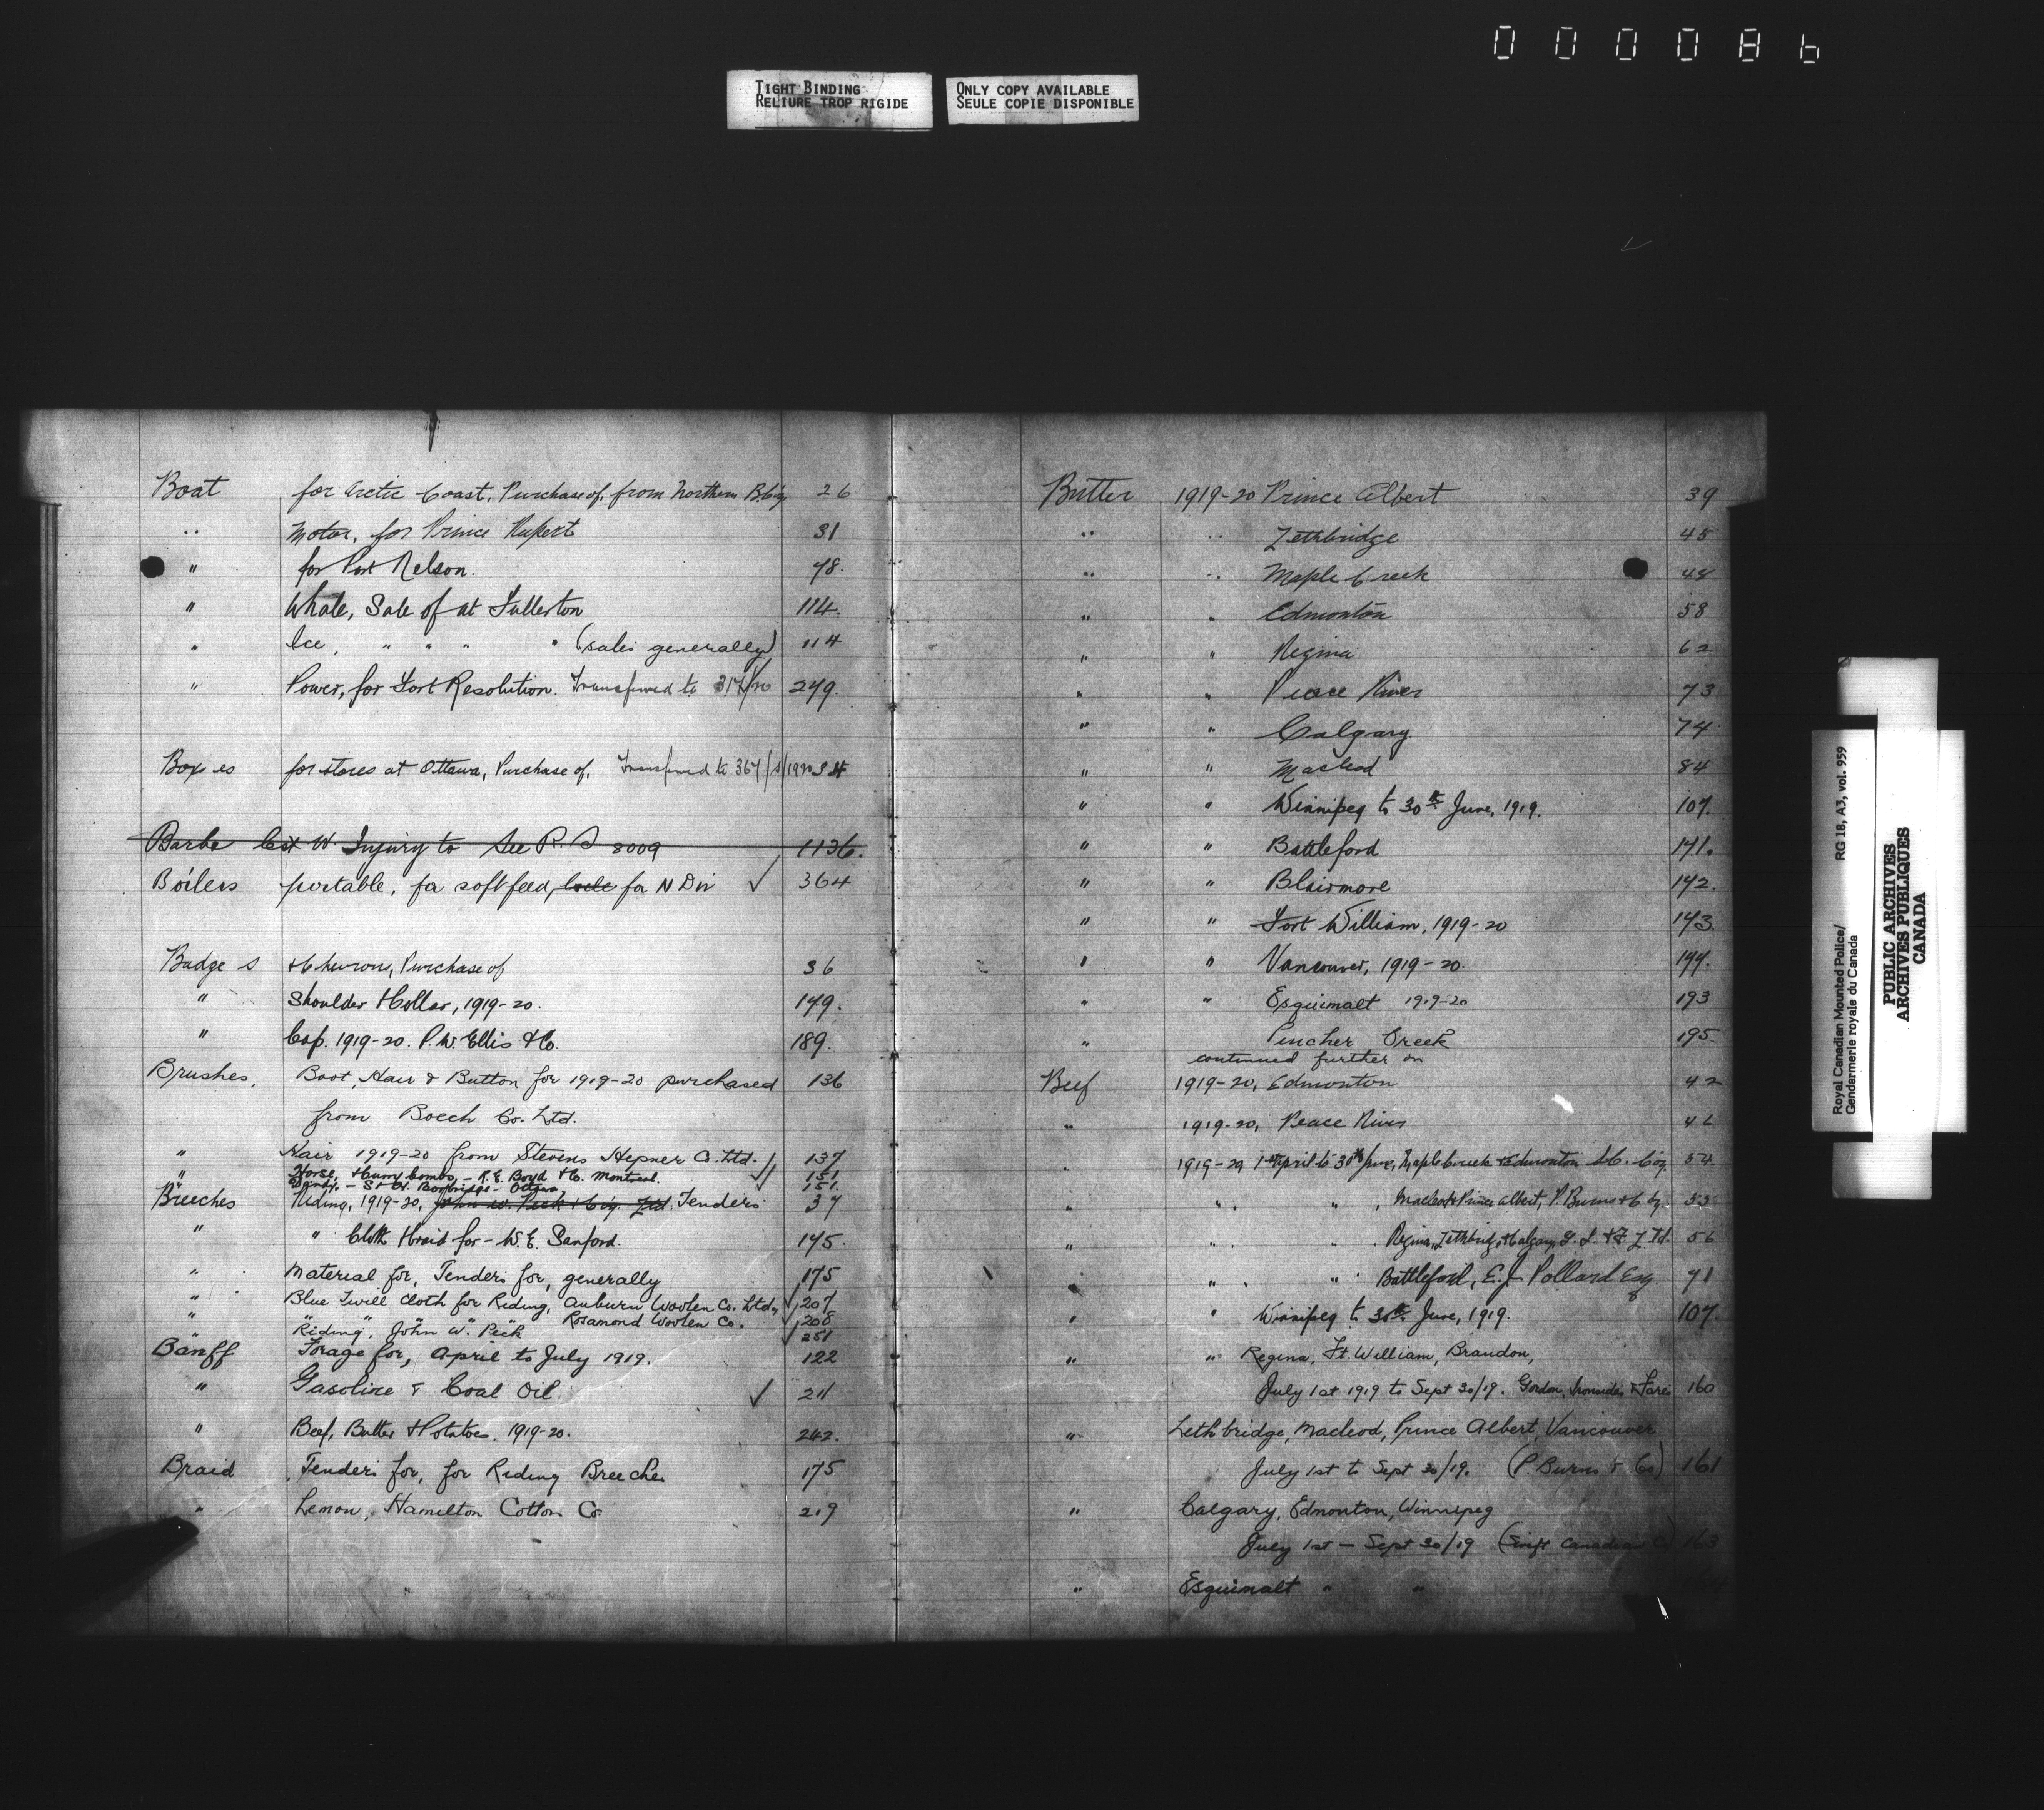 000086
TIGHT BINDING
RELIURE TROP RIGIDE
ONLY COPY AVAILABLE
SEULE COPIE DISPONIBLE
Boat for Arctic Coast, Purchase of, from Northern B. Coy 26
" Motor, for Prince Rupert 31
" for Port Nelson. 78.
" Whale, Sale of at Fullerton 114.
" Ice, " " " " (sales generally) 114
" Power, for Fort Resolution. Transferred to 317/20 249.
Boxes for stores at Ottawa, Purchase of, Transferred to 367/ /1920
Barbe Cst W. Injury to See R. S 8009 1136.
Boilers portable, for soft feed, for N Div ✓ 364
Badges & Chevrons, Purchase of 36
" Shoulder & Collar, 1919-20. 149.
" Cap. 1919-20. P.W. Ellis & Co. 189.
Brushes, Boot, Hair & Button for 1919-20 purchased 136
from Boeckh Co. Ltd.
" Hair 1919-20 from Stevens Hepner Co. Ltd. ✓ 137
" Horse, & Curry Combs, - R.E. Boyd & Co. Montreal. ✓ 151
Dandy. - Ottawa 151.
Breeches Riding, 1919-20, John W. Peck & Coy. Ltd. Tenders 37
" " Cloth & braid for - W.E. Sanford. 145.
" Material for, Tenders for, generally 175
" Blue Twill Cloth for Riding, Auburn Woolen Co. Ltd. ✓ 207
" " " " Rosamond Woolen Co. ✓ 208
Riding, John W. Peck ✓ 251
Banff Forage for, April to July 1919. 122
" Gasoline & Coal Oil. ✓ 211
" Beef, Butter & Potatoes. 1919-20. 242.
Braid Tenders for, for Riding Breeches 175
" Lemon, Hamilton Cotton Co. 219
Butter 1919-20 Prince Albert 39
" " Lethbridge 45
" " Maple Creek 48
" " Edmonton 58
" " Regina 62
" " Peace River 73
" " Calgary 74
" " Macleod 84
" " Winnipeg to 30th June, 1919. 107.
" " Battleford 141.
" " Blairmore 142.
" " Fort William, 1919-20 143
" " Vancouver, 1919-20. 144.
" " Esquimalt 1919-20 193
" Pincher Creek 195
continued further on
Beef 1919-20, Edmonton 42
" 1919-20, Peace River 46
" 1919-20 1st April to 30th June, Maple Creek & Edmonton Coy. 54
" " " , Macleod & Prince Albert, P. Burns & Coy.
" " " . Regina, Lethbridge & Calgary, Ltd. 56
" " " Battleford, E.J. Pollard Esq 71
" " Winnipeg to 30th June, 1919. 107.
" " Regina, Ft. William, Brandon,
July 1st 1919 to Sept 30/19. Gordon, Ironsides & Fares 160
" Lethbridge, Macleod, Prince Albert, Vancouver
July 1st to Sept 30/19. (P. Burns & Co) 161
" Calgary, Edmonton, Winnipeg
July 1st - Sept 30/19 (Swift Canadian Co) 163
" Esquimalt " "
Royal Canadian Mounted Police/ RG 18, A3, vol. 959
Gendarmerie royale du Canada
PUBLIC ARCHIVES
ARCHIVES PUBLIQUES
CANADA